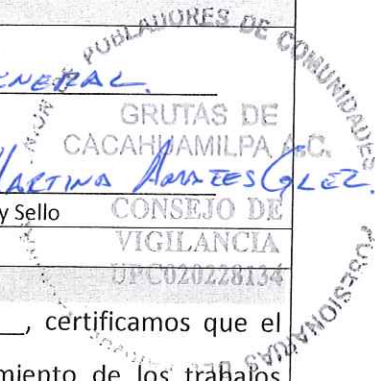 UNIÓN DE POBLADORES DE COMUNIDADES POSESIONARIAS DEL
GENERAL.
GRUTAS DE
CACAHUAMILPA A.C.
MARTINA GLEZ.
y Sello CONSEJO DE
VIGILANCIA
UPC020228134
, certificamos que el
miento de los trabajos